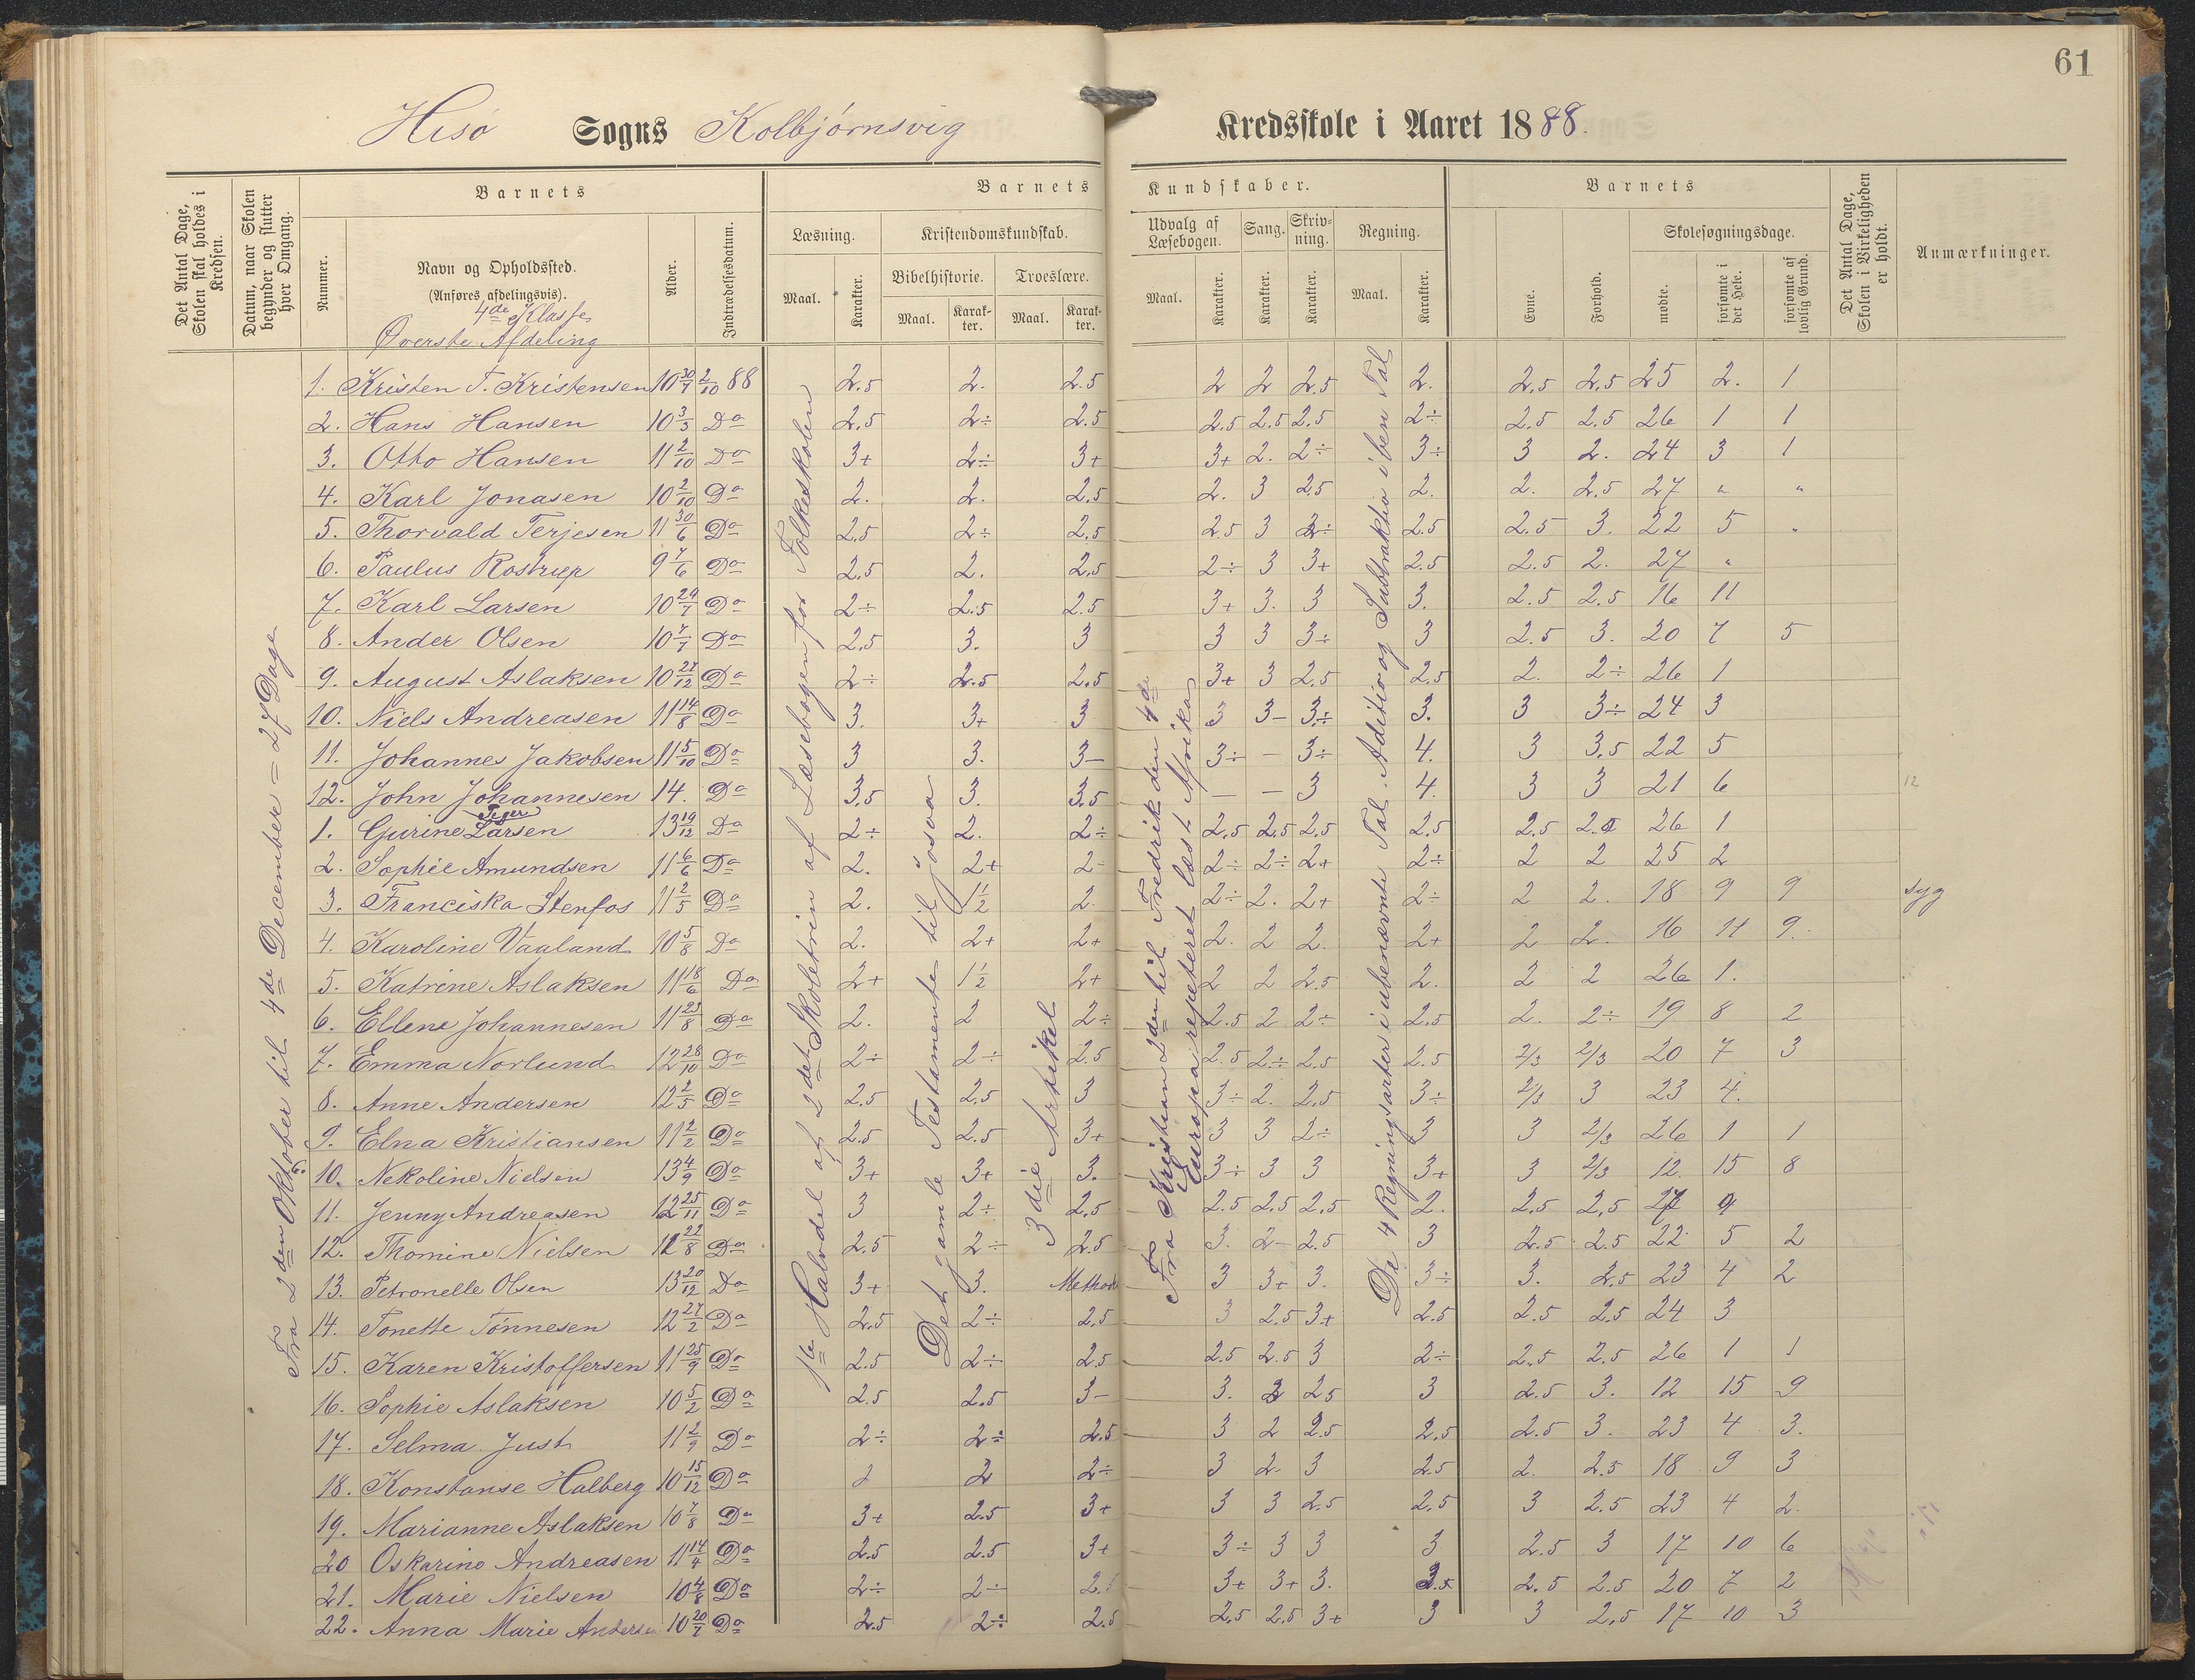 61
Hisö Sogns Kolbjörnsvig Kredsskole i Aaret 1888.
Det Antal Dage, Skolen skal holdes i Kredsen.
Datum, naar Skolen begynder og slutter hver Omgang.
Barnets
Nummer.
Navn og Opholdssted. (Anføres afdelingsvis).
4de Klasse
Øverste Afdeling
Alder.
Indtrædelsesdatum.
Barnets Kundskaber.
Læsning. Kristendomskundskab. Udvalg af Læsebogen. Sang. Skrivning. Regning.
Bibelhistorie. Troeslære.
Maal. Karakter. Maal. Karakter. Maal. Karakter. Maal. Karakter. Karakter. Karakter. Maal. Karakter.
Barnets
Evne. Forhold. Skolesøgningsdage.
mødte. forsømte i det Hele. forsømte af lovlig Grund.
Det Antal Dage, Skolen i Virkeligheden er holdt.
Anmærkninger.
Fra 2den Oktober til 4de December = 27 Dage
1ste Halvdel af 2det Skoletrin af Læsebogen for Folkeskolen
Det gamle Testamente til Josva
3die Artikel
Fra Kristian 2den til Fredrik den 4de
Europa repeteret læst Afrika
De 4 Regningsarter i ubenævnte Tal. Aditio og Subtraktio i ben Tal
1. Kristen T. Kristensen 10 30/7 2/10 88 2.5 2. 2.5 2 2 2.5 2. 2.5 2.5 25 2. 1
2. Hans Hansen 10 3/3 Do 2.5 2÷ 2.5 2.5 2.5 2.5 2÷ 2.5 2.5 26 1 1
3. Otto Hansen 11 2/10 Do 3+ 2÷ 3+ 3+ 2. 2÷ 3÷ 3 2. 24 3 1
4. Karl Jonasen 10 2/10 Do 2. 2. 2.5 2. 3 2.5 2. 2. 2.5 27 " "
5. Thorvald Terjesen 11 30/6 Do 2.5 2÷ 2.5 2.5 3 2÷ 2.5 2.5 3. 22 5 "
6. Paulus Rostrup 9 7/6 Do 2.5 2. 2.5 2÷ 3 3+ 2.5 2.5 2. 27 "
7. Karl Larsen 10 29/7 Do 2÷ 2.5 2.5 3+ 3. 3 3. 2.5 2.5 16 11
8. Ander Olsen 10 7/7 Do 2.5 3. 3 3 3 3÷ 3 2.5 3. 20 7 5
9. August Aslaksen 10 27/12 Do 2÷ 2.5 2.5 3+ 3 2.5 2.5 2. 2÷ 26 1
10. Niels Andreasen 11 14/8 Do 3. 3+ 3 3 3- 3÷ 3. 3 3÷ 24 3
11. Johannes Jakobsen 11 5/10 Do 3 3. 3- 3÷ - 3÷ 4. 3 3.5 22 5
12. John Johannesen 14. Do 3.5 3. 3.5 - - 3 4. 3 3 21 6 12
Piger
1. Gurine Larsen 13 19/12 Do 2÷ 2. 2÷ 2.5 2.5 2.5 2.5 2.5 26 1
2. Sophie Amundsen 11 6/6 Do 2. 2+ 2- 2÷ 2÷ 2+ 2÷ 2 2 25 2
3. Franciska Stenfos 11 2/5 Do 2. 1½ 2. 2÷ 2. 2+ 2÷ 2 2. 18 9 9 Syg
4. Karoline Vaaland 10 5/8 Do 2. 2+ 2+ 2. 2 2. 2+ 2 2. 16 11 9.
5. Katrine Aslaksen 11 18/6 Do 2+ 1½ 2+ 2 2 2.5 2. 2 2 26 1.
6. Ellene Johannesen 11 23/8 Do 2. 2 2÷ 2.5 2 2÷ 2.5 2. 2÷ 19 8 2
7. Emma Norlund 12 28/10 Do 2÷ 2÷ 2.5 2.5 2÷ 2.5 2.5 2/3 2/3 20 7 3
8. Anne Andersen 12 2/5 Do 2.5 2.5 3 3÷ 2. 2.5 3÷ 2/3 3 23 4.
9. Elna Kristiansen 11 2/2 Do 2.5 2.5 3+ 3 3 2÷ 3 3 2/3 26 1 1
10. Nekoline Nielsen 13 4/9 Do 3+ 3+ 3. 3÷ 3 3 3+ 3 2/3 12. 15 8
11. Jenny Andreasen 12 25/11 Do 3 2÷ 2.5 2.5 2.5 2.5 2. 2.5 2.5 27
12. Thomine Nielsen 12 22/8 Do 2.5 2÷ 2.5 3. 2- 2.5 3 2.5 2.5 22 5 2
13. Petronelle Olsen 13 20/12 Do 3+ 3. 3 3+ 3. 3÷ 3. 2.5 23 4 2
14. Tonette Tönnesen 12 27/2 Do 2.5 2÷ 2.5 3 2.5 3+ 2.5 2.5 2.5 24 3
15. Karen Kristoffersen 11 25/9 Do 2.5 2÷ 2.5 2.5 2.5 3 2÷ 2.5 2.5 26 1 1
16. Sophie Aslaksen 10 5/2 Do 2.5 2.5 3- 3. 2 2.5 3 2.5 3. 12 15 9
17. Selma Just 11 2/9 Do 2÷ 2÷ 2.5 3 2 2.5 2.5 2.5 3. 23 4 3.
18. Konstanse Halberg 10 15/12 Do 2 2 2÷ 3 2- 3 2.5 2. 2.5 18 9 3
19. Marianne Aslaksen 10 7/8 Do 3+ 2.5 3+ 3 3 2.5 2.5 3 2.5 23 4 2.
20 Oskarine Andreasen 11 14/4 Do 2.5 2.5 3+ 3÷ 3 3 3 2.5 3 17 10 6
21. Marie Nielsen 10 4/8 Do 2÷ 2÷ 2.5 3+ 3+ 3. 2.5 2.5 20 7 2
22. Anna Marie Anderse 10 20/7 Do 2.5 2÷ 2.5 2.5 2.5 3+ 3 3 2.5 17 10 3